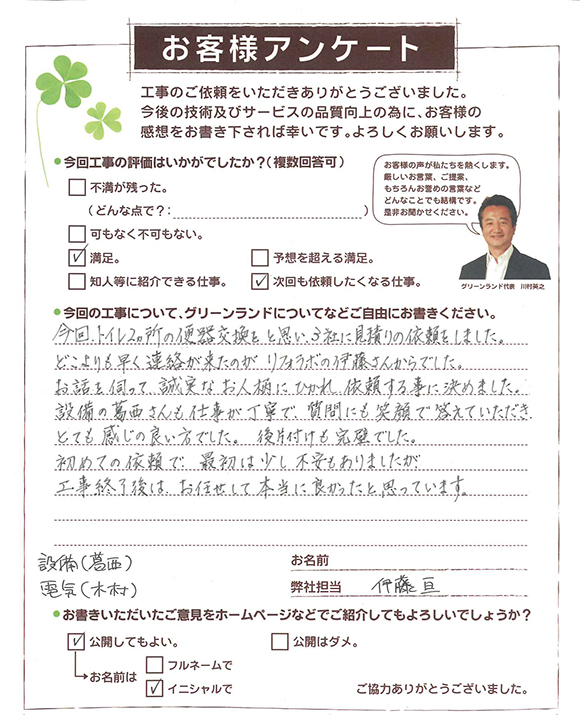 お客様アンケート
工事のご依頼をいただきありがとうございました。
今後の技術及びサービスの品質向上の為に、お客様の
感想をお書き下されば幸いです。よろしくお願いします。
●今回工事の評価はいかがでしたか？（複数回答可）
□不満が残った。
（どんな点で？：　）
□可もなく不可もない。
☑満足。
□予想を超える満足。
□知人等に紹介できる仕事。
☑次回も依頼したくなる仕事。
お客様の声が私たちを熱くします。
厳しいお言葉、ご提案、
もちろんお誉めの言葉など
どんなことでも結構です。
是非お聞かせください。
グリーンランド代表　川村英之
●今回の工事について、グリーンランドについてなどご自由にお書きください。
今回、トイレ2ヵ所の便器交換をと思い、3社に見積りの依頼をしました。
どこよりも早く連絡が来たのが リフォラボの伊藤さんからでした。
お話を伺って、誠実なお人柄にひかれ、依頼する事に決めました。
設備の葛西さんも仕事が丁寧で、質問にも笑顔で答えていただき
とても感じの良い方でした。 後片付けも完璧でした。
初めての依頼で、最初は少し不安もありましたが
工事終了後は、お任せして本当に良かったと思っています。
設備（葛西）
電気（木村）
お名前
弊社担当　伊藤 亘
●お書きいただいたご意見をホームページなどでご紹介してもよろしいでしょうか？
☑公開してもよい。
□公開はダメ。
→お名前は
□フルネームで
☑イニシャルで
ご協力ありがとうございました。